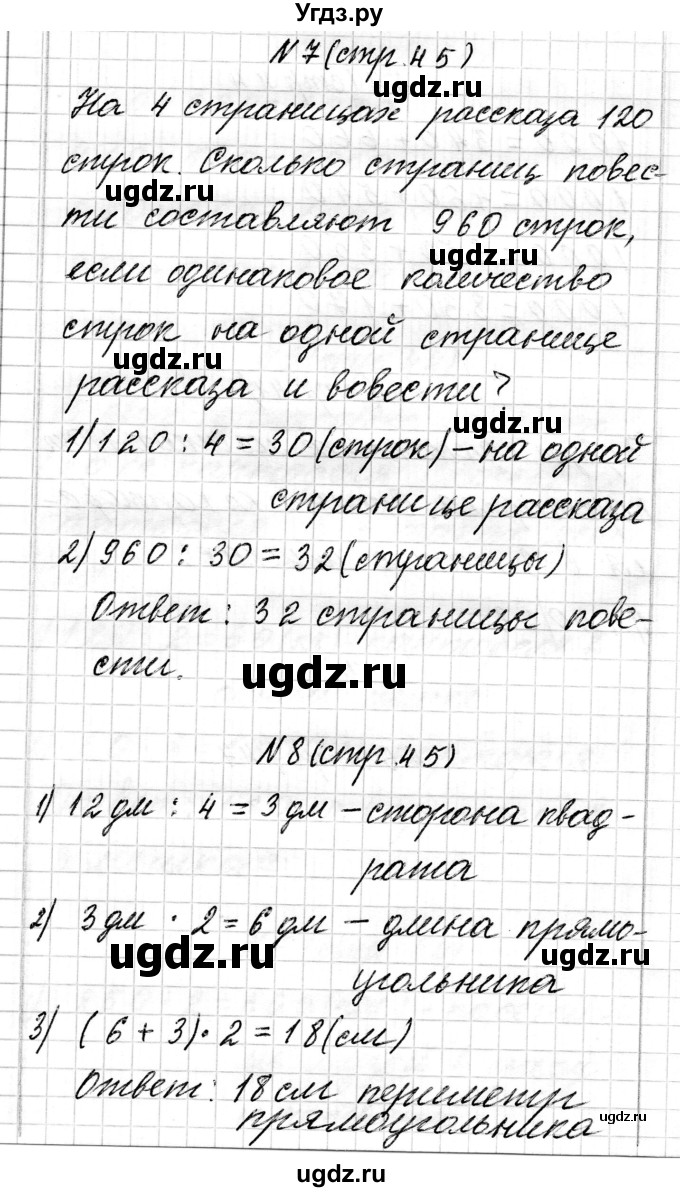 Угдз.ру
N 7 (стр. 45)
ugdz.ru
На 4 страницах рассказа 120
строк. Сколько страниц повес-
ugdz.ru
ти составляют 960 строк,
ugdz.ru
если одинаковое количество
строк на одной странице
ugdz.ru
рассказа и вовести?
1) 120 : 4 = 30 (строк) – на одной
ugdz.ru
странице рассказа
2) 960 : 30 = 32 (страницы)
ugdz.ru
Ответ: 32 страницы пове-
сти.
ugdz.ru
N 8 (стр. 45)
1) 12 дм : 4 = 3 дм – сторона квад-
ugdz.ru
рата
2) 3 дм · 2 = 6 дм – длина прямо-
ugdz.ru
ugdz.ru
угольника
3) (6 + 3) · 2 = 18 (см)
Ответ: 18 см периметр
ugdz.ru
прямоугольника
ugdz.ru
ugdz.ru